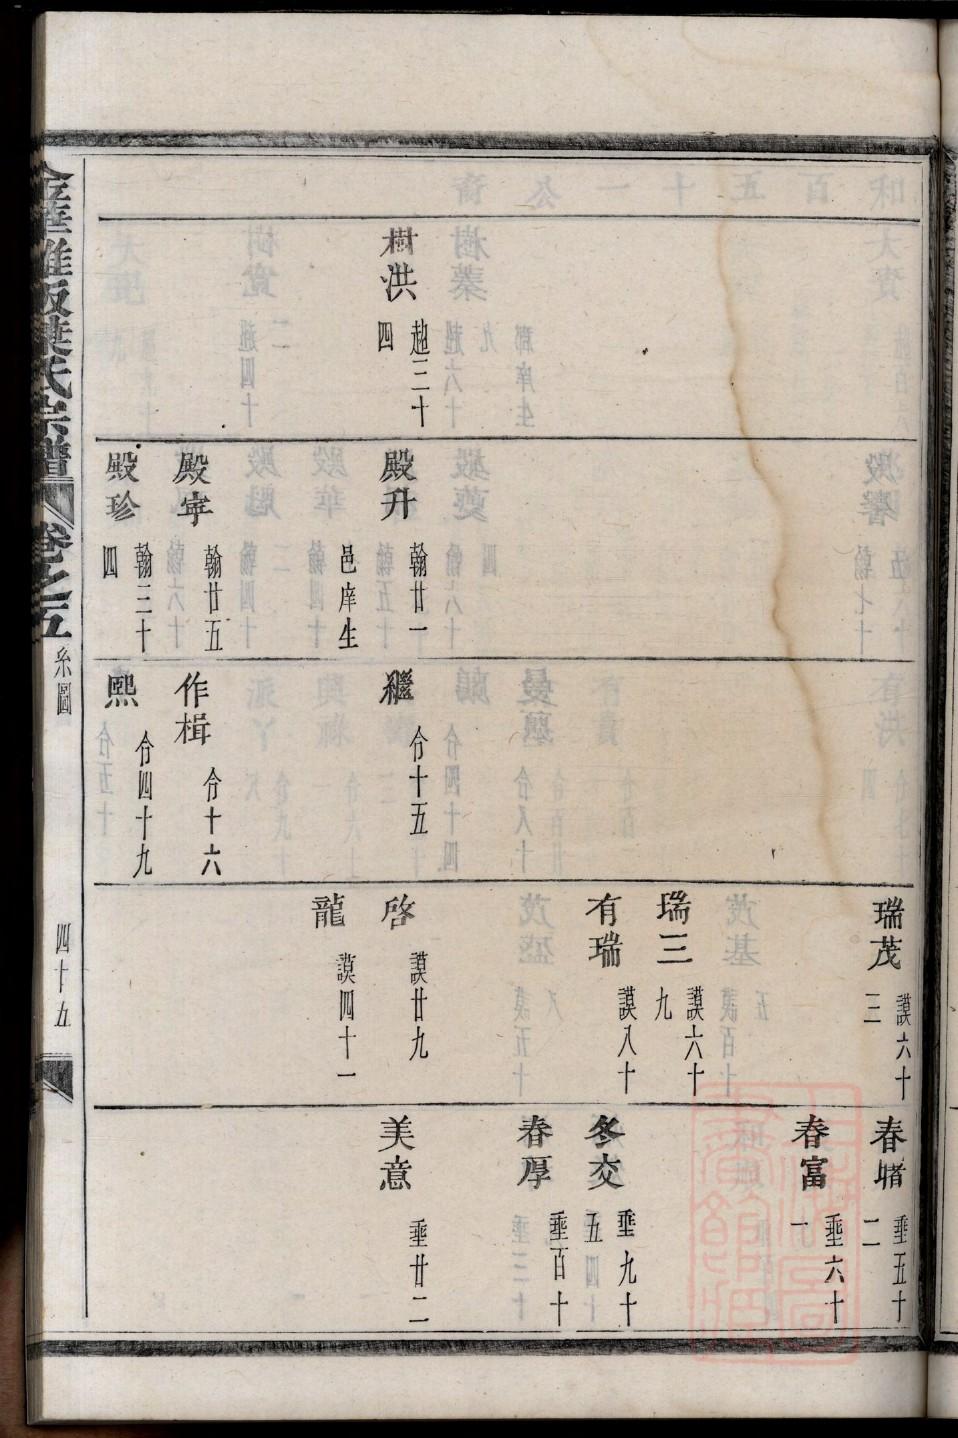 樹洪 趙三十四
殿升 翰廿一 邑庠生
殿宰 翰廿五
殿珍 翰三十四
繼 合十五
作楫 合十六
熙 合四十九
瑞茂 謨六十三
瑞三 謨六十九
有瑞 謨八十
啓 謨廿九
龍 謨四十一
春 垂五十二
春富 垂六十一
冬交 垂九十五
春厚 垂百十
美意 垂廿二
金華雅畈葉氏宗譜 卷之五 系圖 四十五